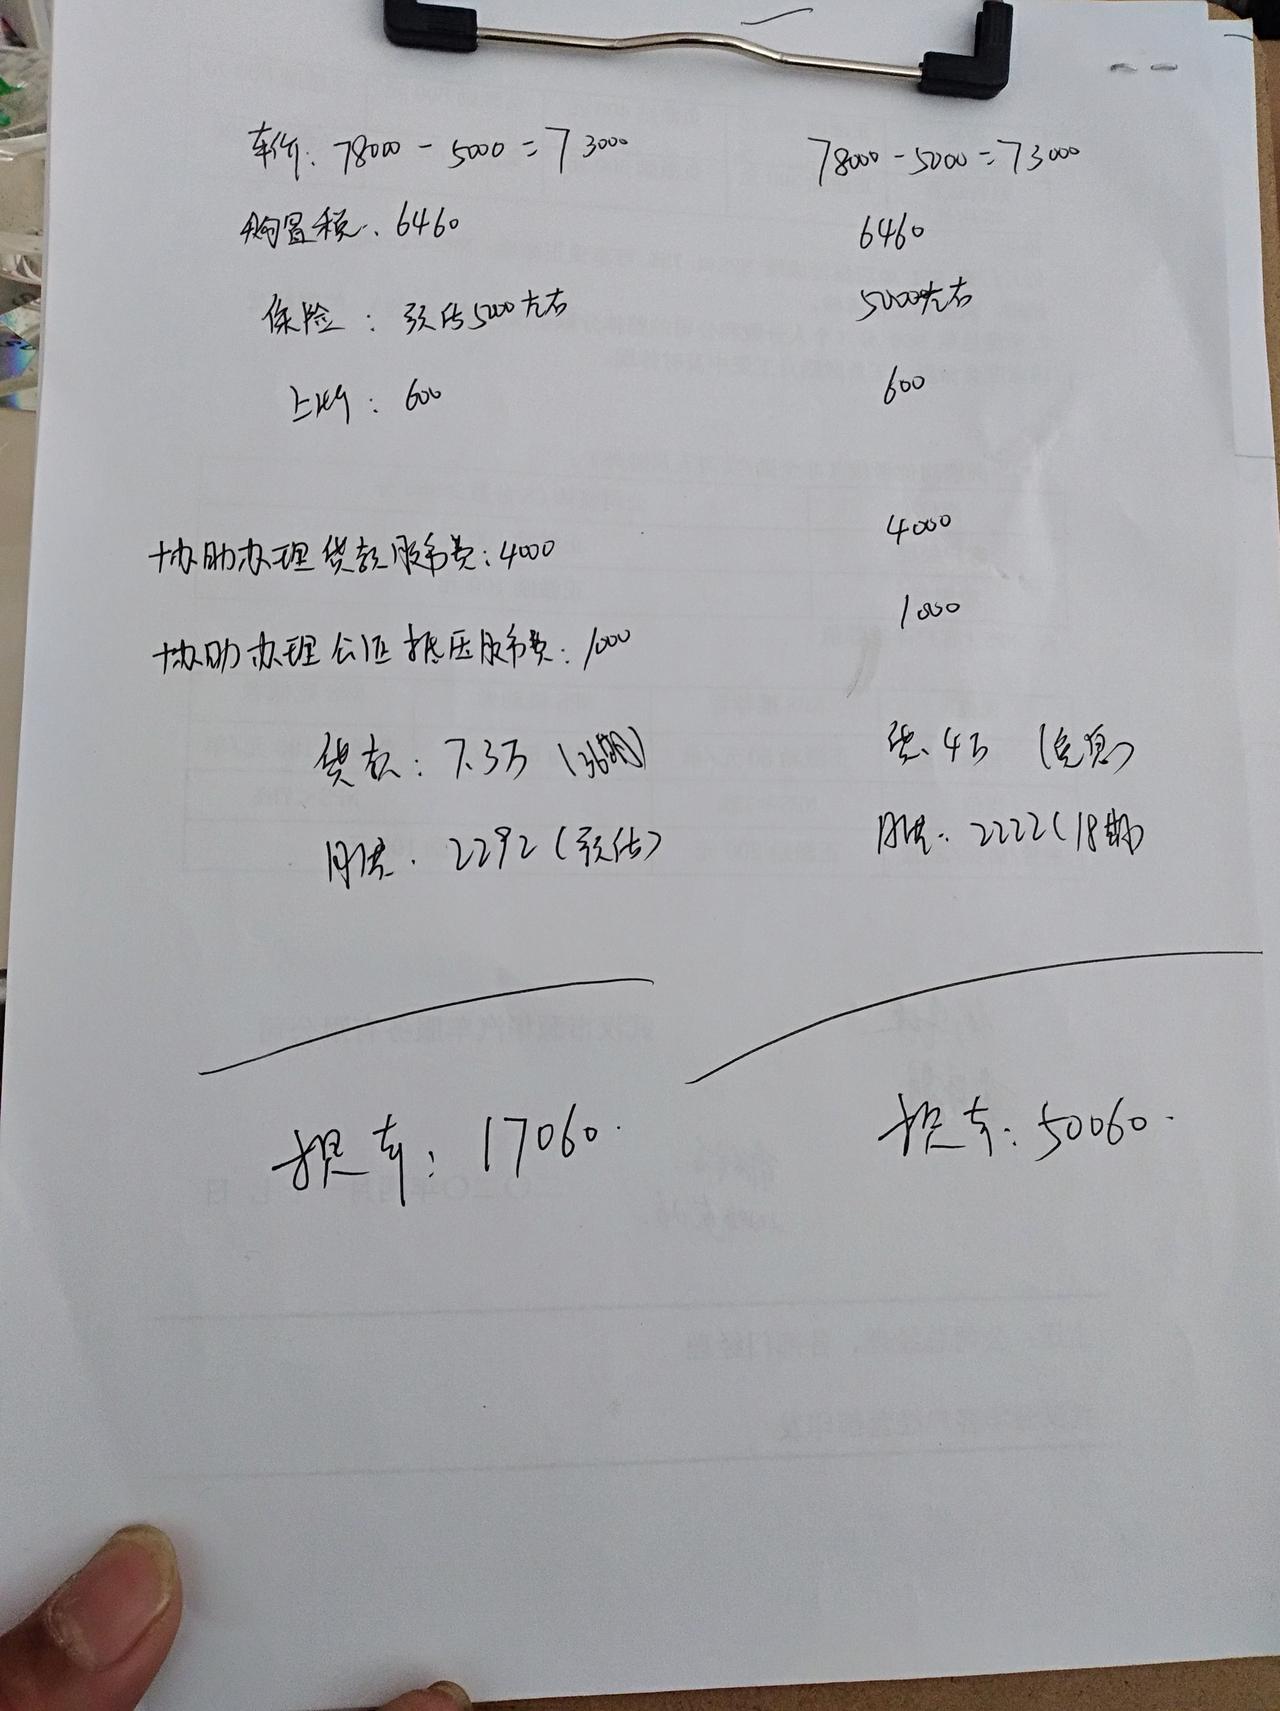 车价: 78000 - 5000 = 73000
购置税. 6460
保险 : 预估5000左右
上牌 : 600
协助办理贷款服务费: 4000
协助办理公证抵压服务费: 1000
贷款: 7.3万 (36期)
月供. 2292 (预估)
提车: 17060.
78000 - 5000 = 73000
6460
5000左右
600
4000
1000
贷. 4万 (免息)
月供. 2222 (18期)
提车: 50060.